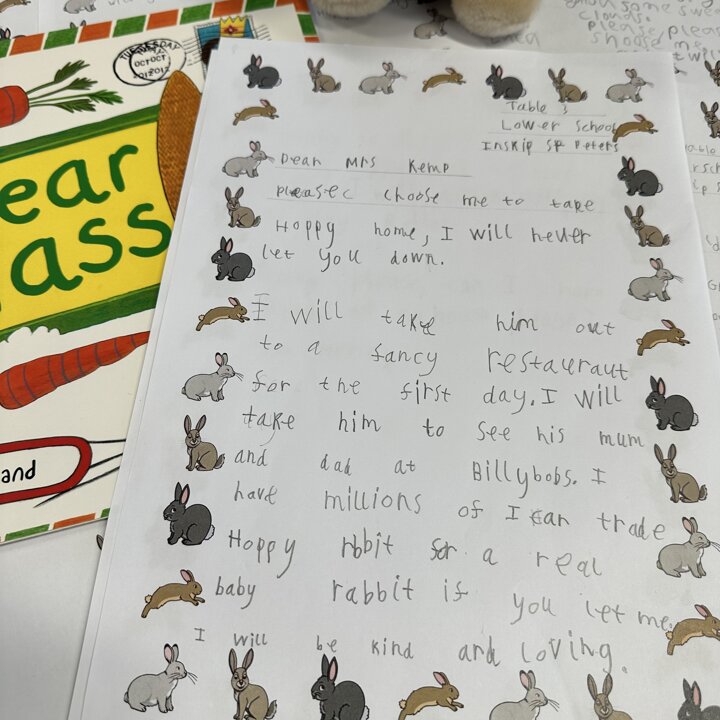 TUESDAY
OCT OCT
2012 2012
ear
ass
and
Table 3
Lower School
Inskip St Peters
Dear Mrs Kemp
pleasec choose me to take
Hoppy home, I will never
let you down.
I will take him out
to a fancy restauraut
for the first day. I will
take him to see his mum
and dad at Billybobs. I
have millions of I can trade
Hoppy rbbit for a real
baby rabbit if you let me.
I will be kind and loving.
some sweet
clouds.
please
choose me